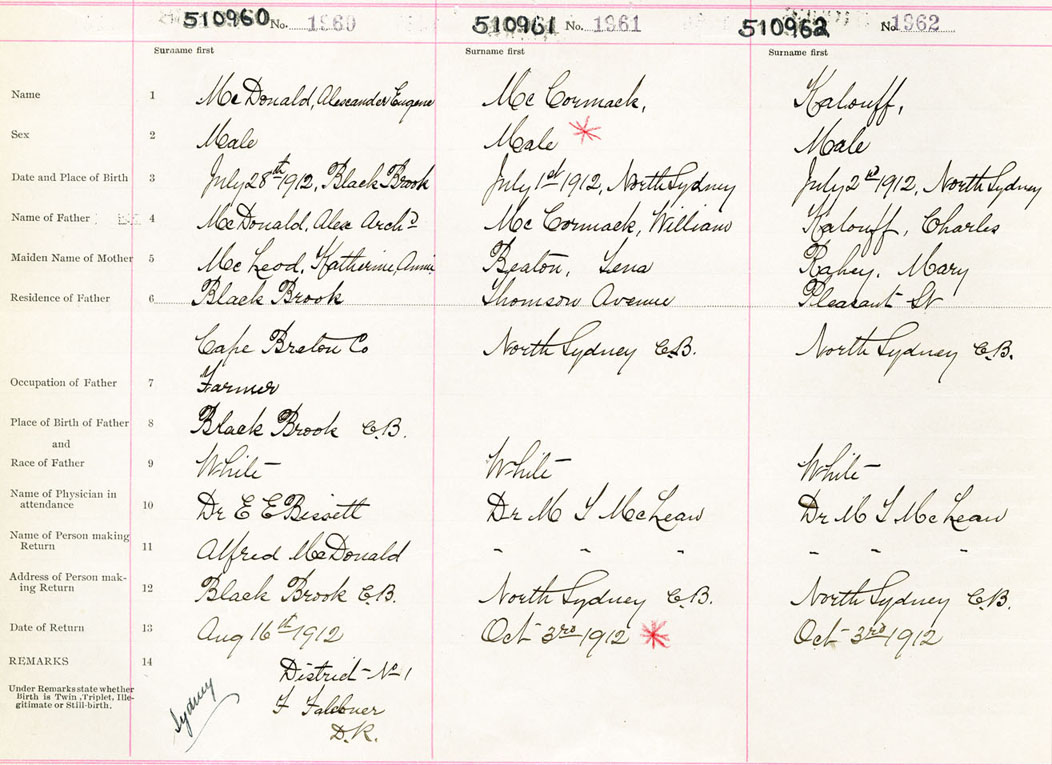 510960 No. 1960 510961 No. 1961 510962 No. 1962
Surname first Surname first Surname first
Name 1 McDonald, Alexander Eugene McCormack, Kalouff,
Sex 2 Male Male Male
Date and Place of Birth 3 July 28th 1912, Black Brook July 1st 1912, North Sydney July 2nd 1912, North Sydney
Name of Father 4 McDonald, Alex Archd McCormack, William Kalouff, Charles
Maiden Name of Mother 5 McLeod, Katherine Annie Beaton, Lena Rahey, Mary
Residence of Father 6 Black Brook Thomson Avenue Pleasant St
Cape Breton Co North Sydney C.B. North Sydney C.B.
Occupation of Father 7 Farmer
Place of Birth of Father 8 Black Brook C.B.
and
Race of Father 9 White White White
Name of Physician in
attendance 10 Dr E E Bissett Dr M T McLean Dr M T McLean
Name of Person making
Return 11 Alfred McDonald " " " " " "
Address of Person mak-
ing Return 12 Black Brook C.B. North Sydney C.B. North Sydney C.B.
Date of Return 13 Aug 16th 1912 Oct 3rd 1912 Oct 3rd 1912
REMARKS 14 District No 1
Under Remarks state whether
Birth is Twin, Triplet, Ille-
gitimate or Still-birth.
F Falconer
D.R.
Sydney